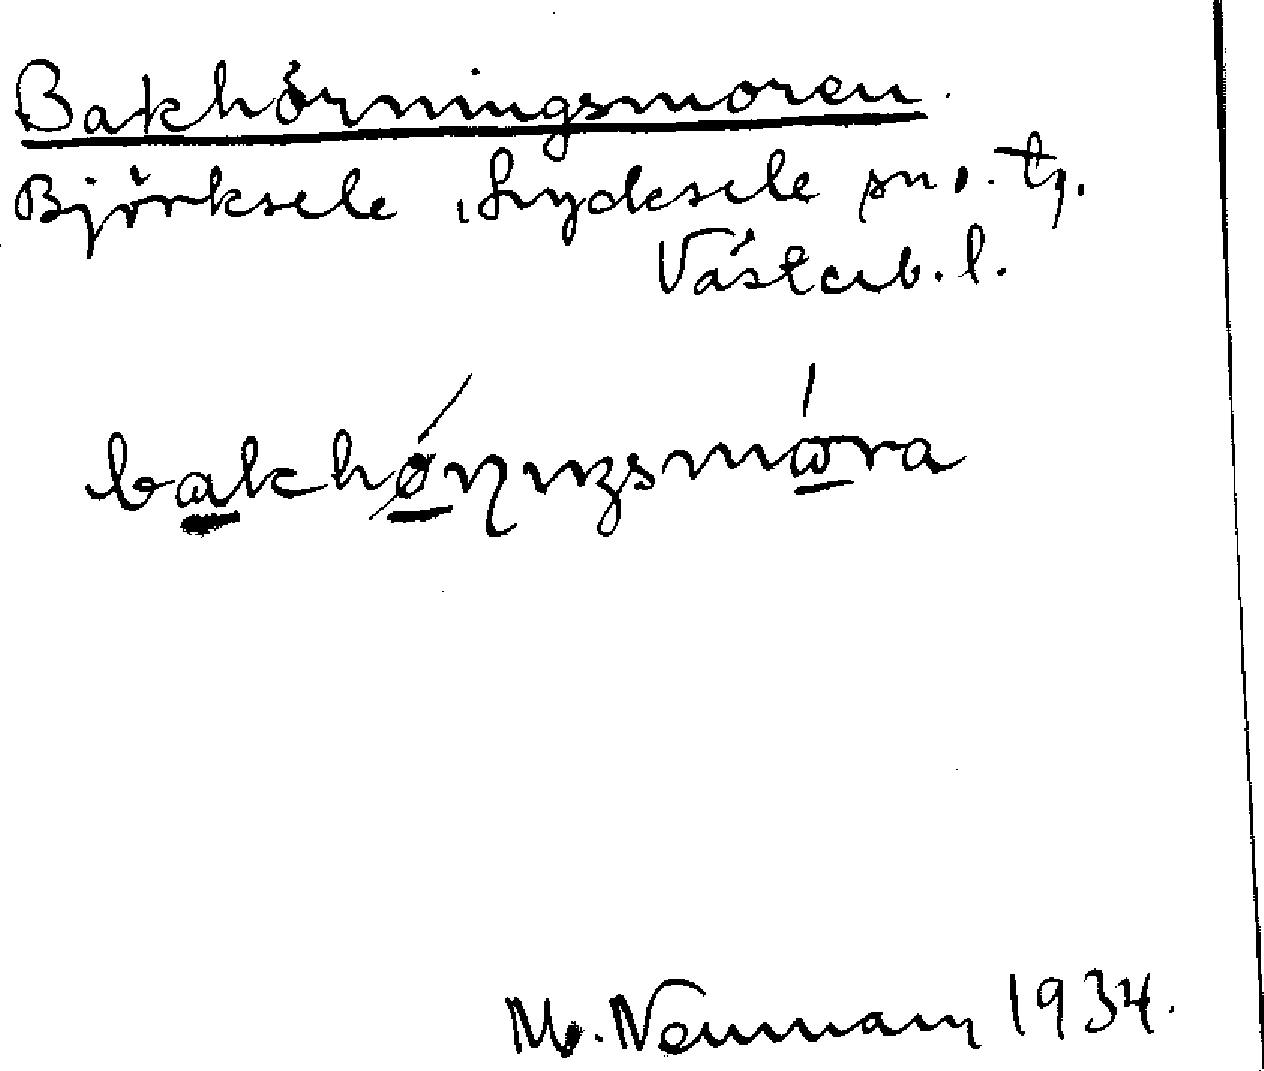 Bakhörningsmoren
Björksele, Lycksele sn o. tg.
Västerb. l.
bakhø̱ɳiŋsmɷ̱ra
M. Neuman 1934.